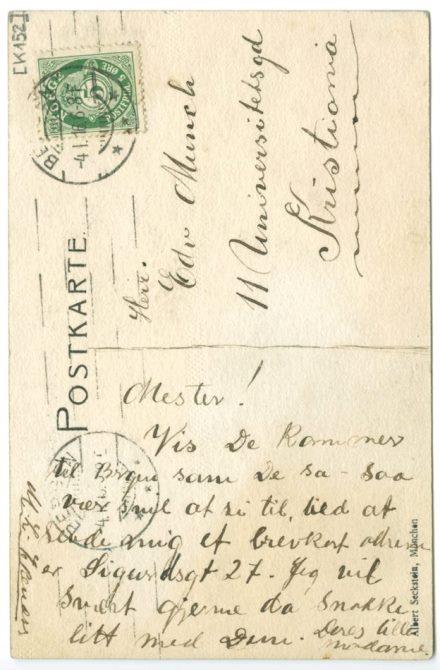 [K152]
NORGE
5 ØRE
POSTKARTE
Herr.
Edv Munch
11 Universitetsgd
Kristiania
BERGEN
Mester!
Vis De kommer
til Bergen som De sa - saa
vær snil at se til, ved at
sende mig et brevkort adresse
er Sigurdsgt 27. Jeg vil
svært gjerne da snakke
litt med Dem. Deres lille
madame.
Albert Seckstein, München